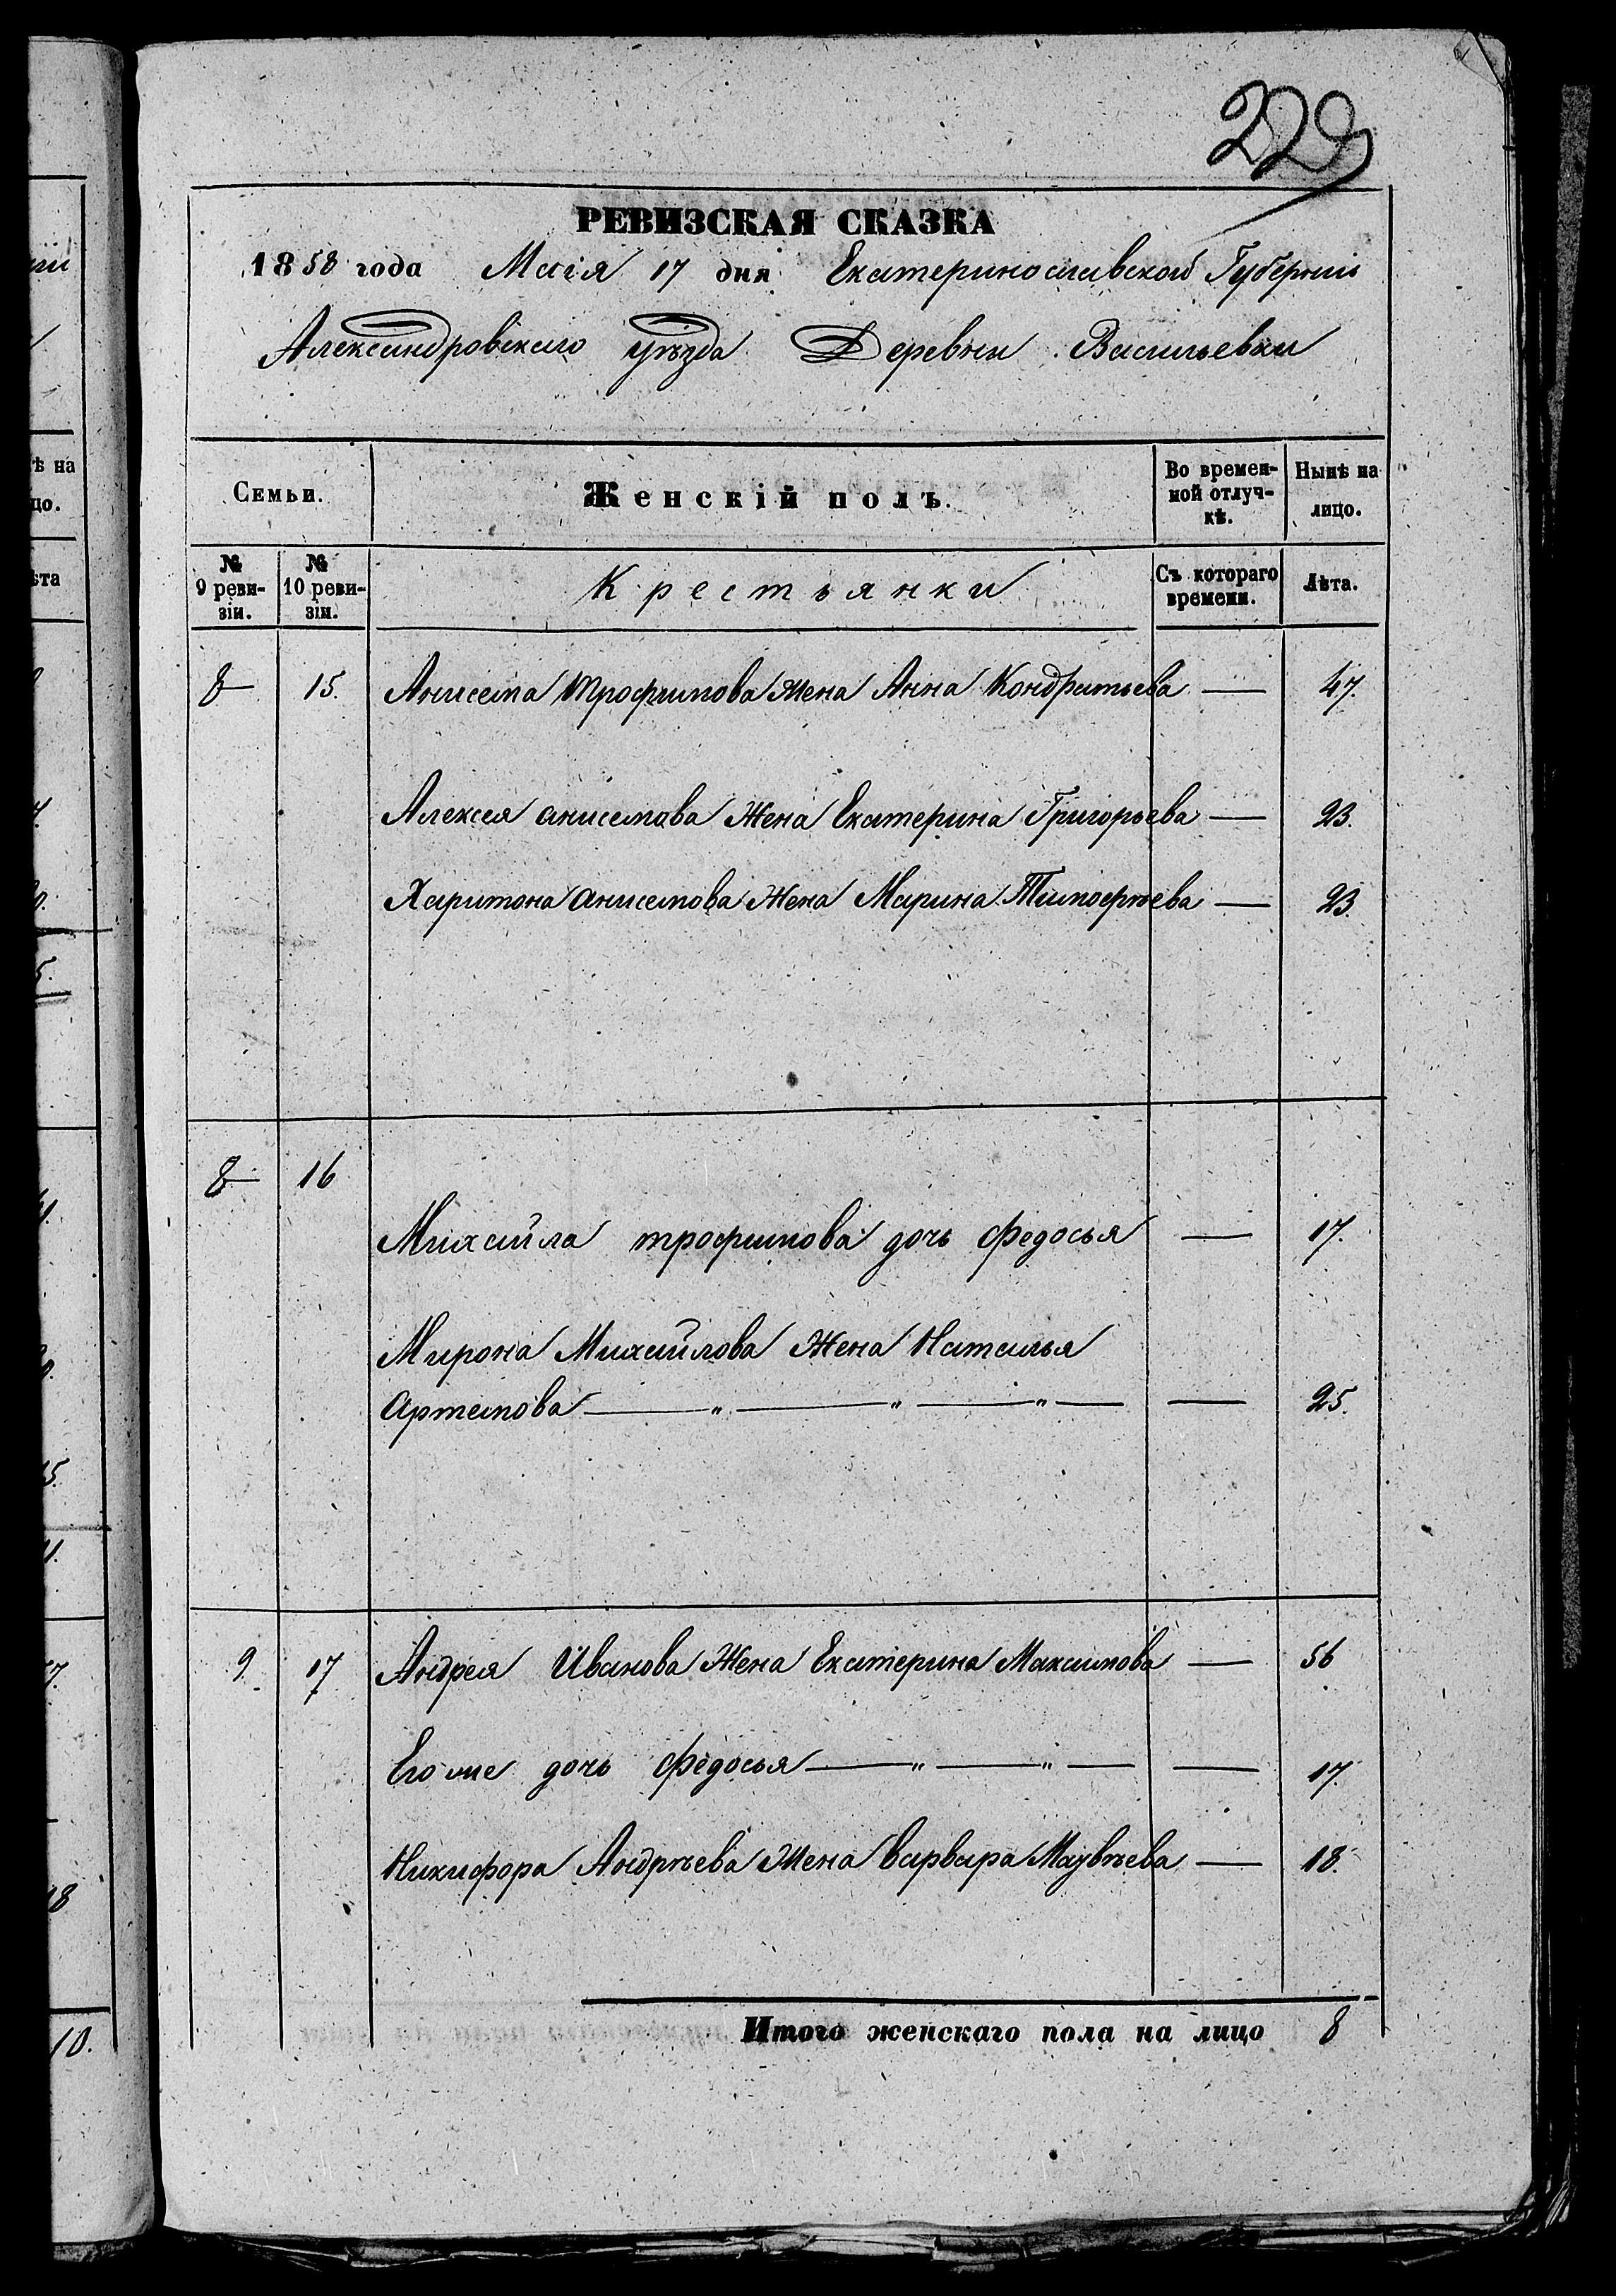 229
РЕВИЗСКАЯ СКАЗКА
1858 года Маія 17 дня Екатеринославской Губерніи
Александровскаго уѣзда Деревни Васильевки
Семьи. Женскій полъ. Во времен-ной отлуч-кѣ. Нынѣ на лицо.
№ 9 реви-зіи. № 10 реви-зіи. Крестьянки Съ котораго времени. Лѣта.
8 15. Анисема Трофимова Жена Анна Кондратьева — 47.
Алексея анисемова Жена Екатерина Григорьева — 23.
Харитона анисемова Жена Марина Тимофѣева — 23.
8 16
Михайла трофимова дочь федосья — 17.
Мирона Михайлова Жена Наталья
артемова — „ — „ — „ — — 25.
9. 17 Андрея Иванова Жена Екатерина Максимова — 56
Его же дочь федосья — „ — „ — — 17.
Никифора Андрѣева Жена варвара Матвѣева — 18.
Итого женскаго пола на лицо 8
ѣ на
цо.
ѣта
10.